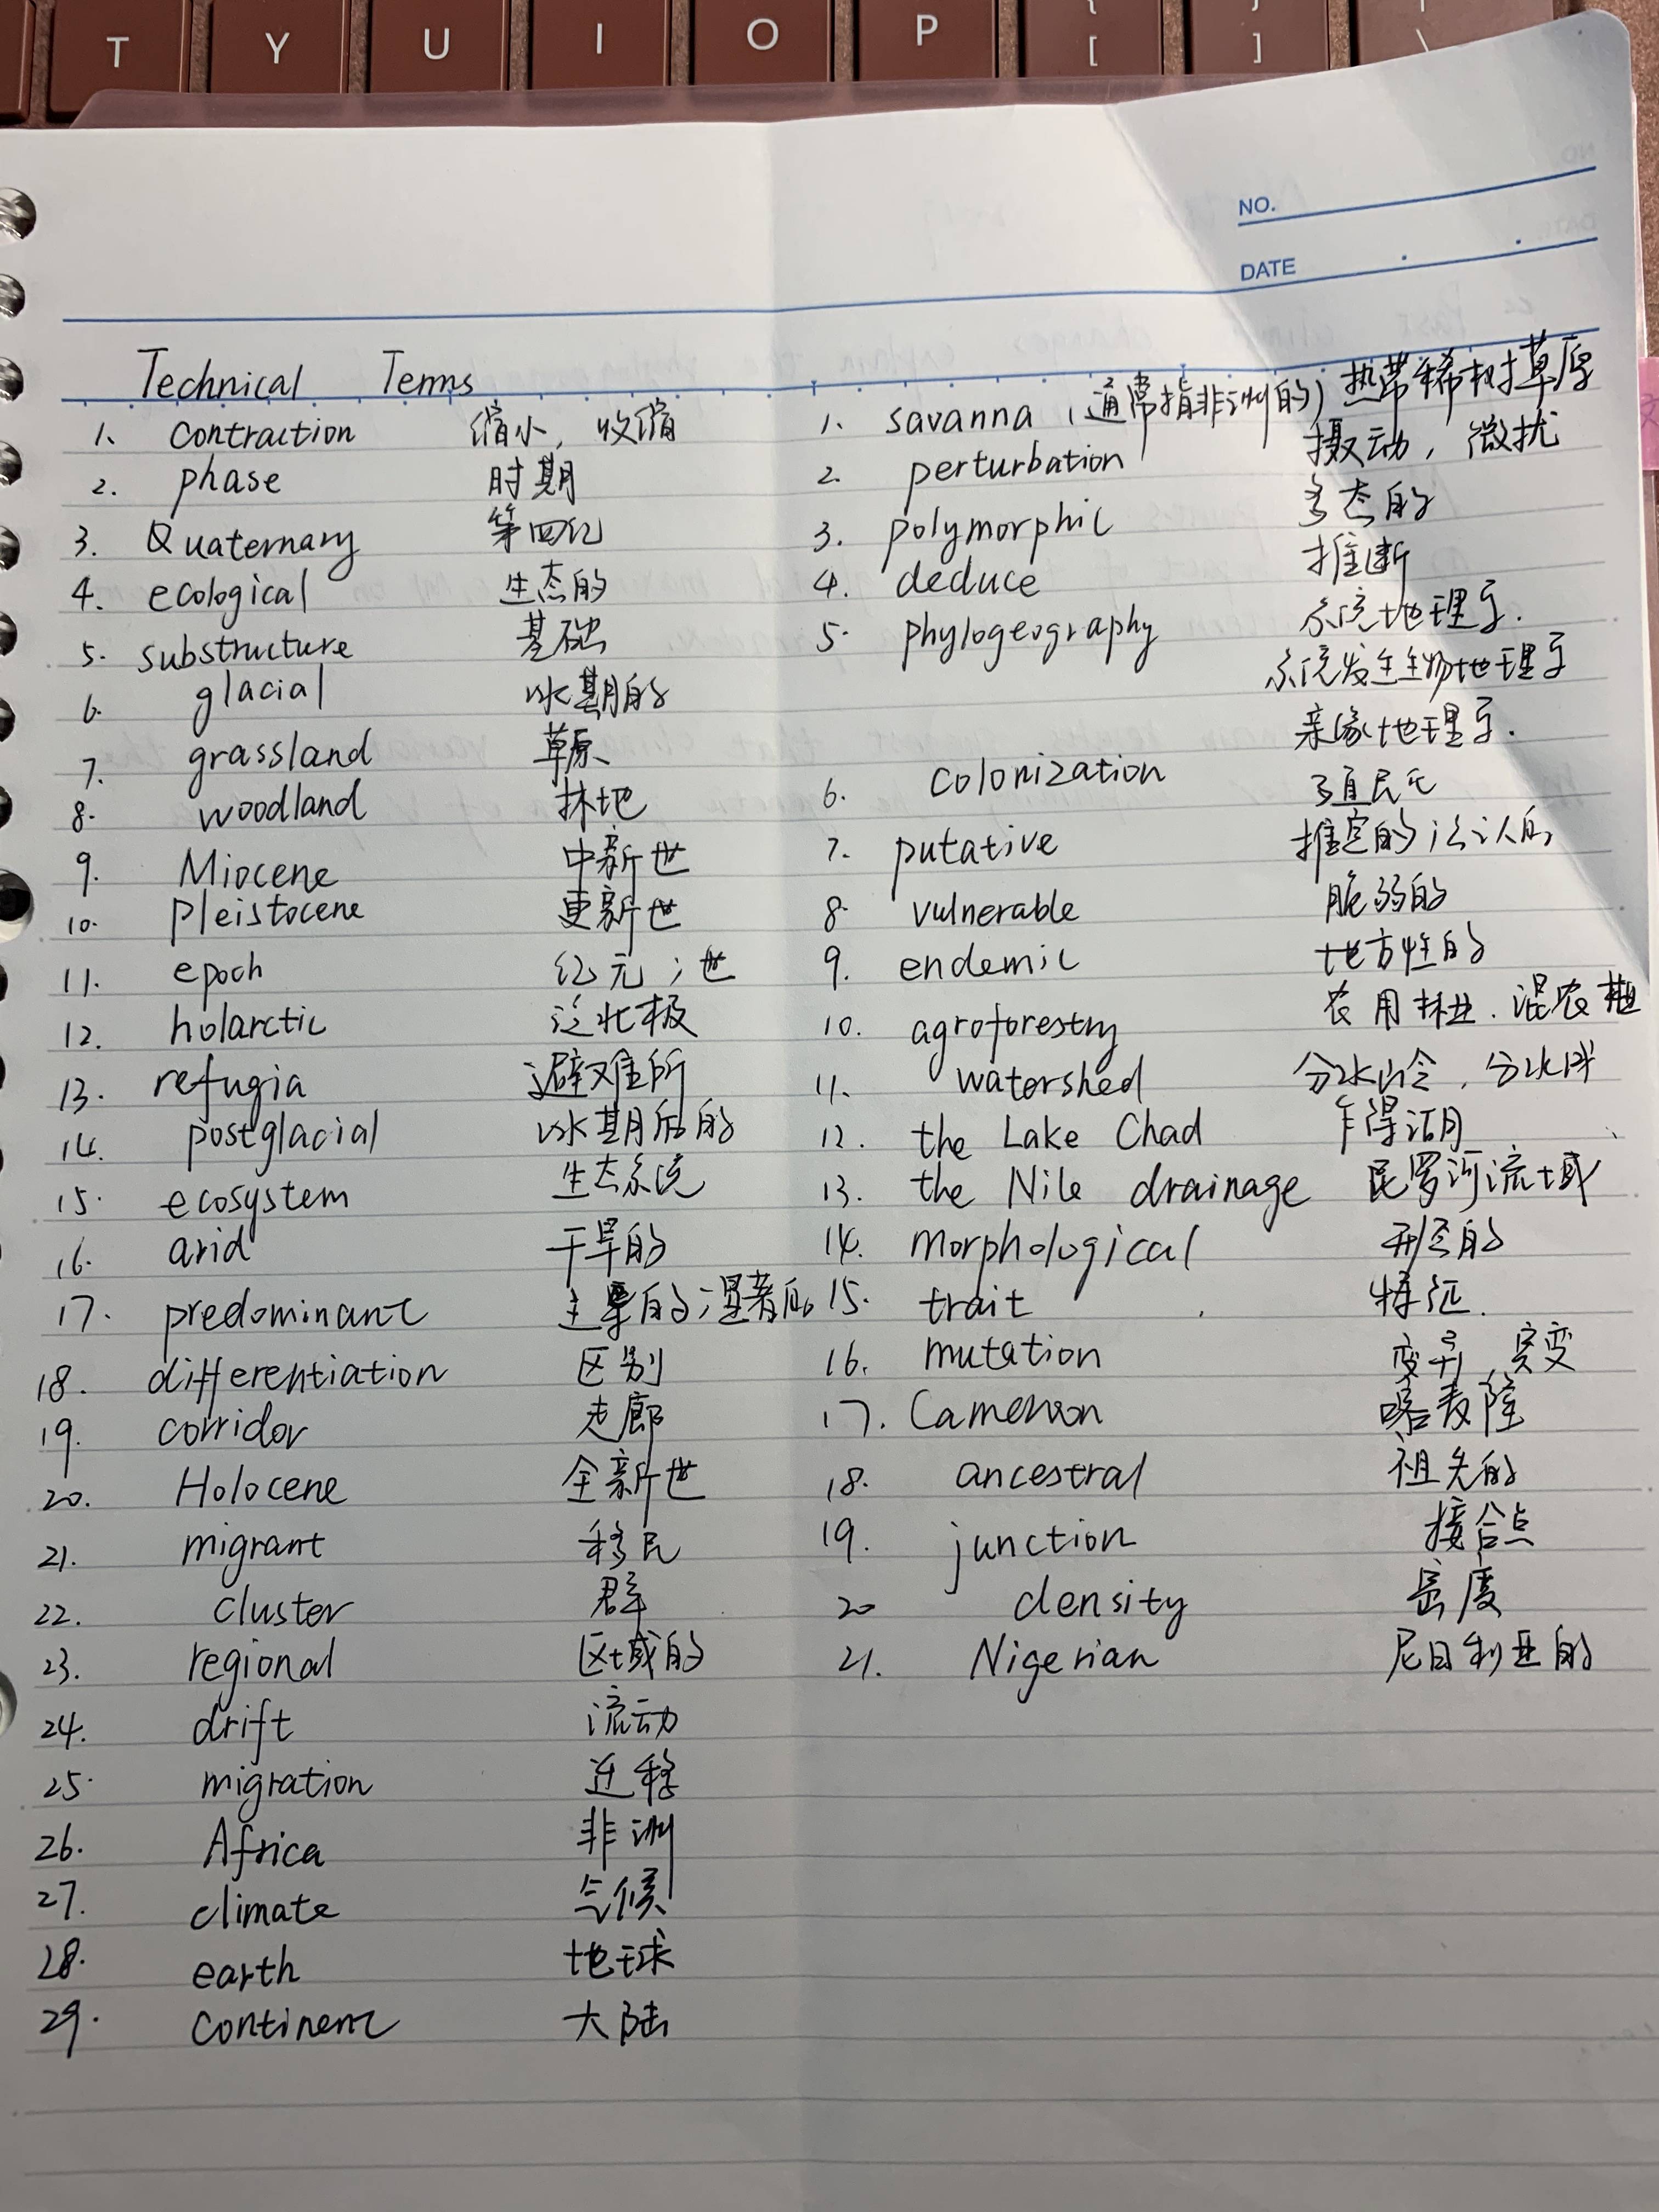 T Y U I O P { [ } ] \
NO.
DATE
Technical Terms
1. contraction 缩小，收缩
2. phase 时期
3. Quaternary 第四纪
4. ecological 生态的
5. substructure 基础
6. glacial 冰期的
7. grassland 草原
8. woodland 林地
9. Miocene 中新世
10. Pleistocene 更新世
11. epoch 纪元；世
12. holarctic 泛北极
13. refugia 避难所
14. postglacial 冰期后的
15. ecosystem 生态系统
16. arid 干旱的
17. predominant 主要的；显著的
18. differentiation 区别
19. corridor 走廊
20. Holocene 全新世
21. migrant 移民
22. cluster 群
23. regional 区域的
24. drift 流动
25. migration 迁移
26. Africa 非洲
27. climate 气候
28. earth 地球
29. continent 大陆
1. savanna（通常指非洲的）热带稀树草原
2. perturbation 摄动，微扰
3. polymorphic 多态的
4. deduce 推断
5. phylogeography 系统地理学.
系统发生生物地理学
亲缘地理学.
6. colonization 殖民化
7. putative 推定的 公认的
8. vulnerable 脆弱的
9. endemic 地方性的
10. agroforestry 农用林业. 混农林业
11. watershed 分水岭，分水线
12. the Lake Chad 乍得湖
13. the Nile drainage 尼罗河流域
14. morphological 形态的
15. trait 特征.
16. mutation 变异，突变
17. Cameroon 喀麦隆
18. ancestral 祖先的
19. junction 接合点
20 density 密度
21. Nigerian 尼日利亚的